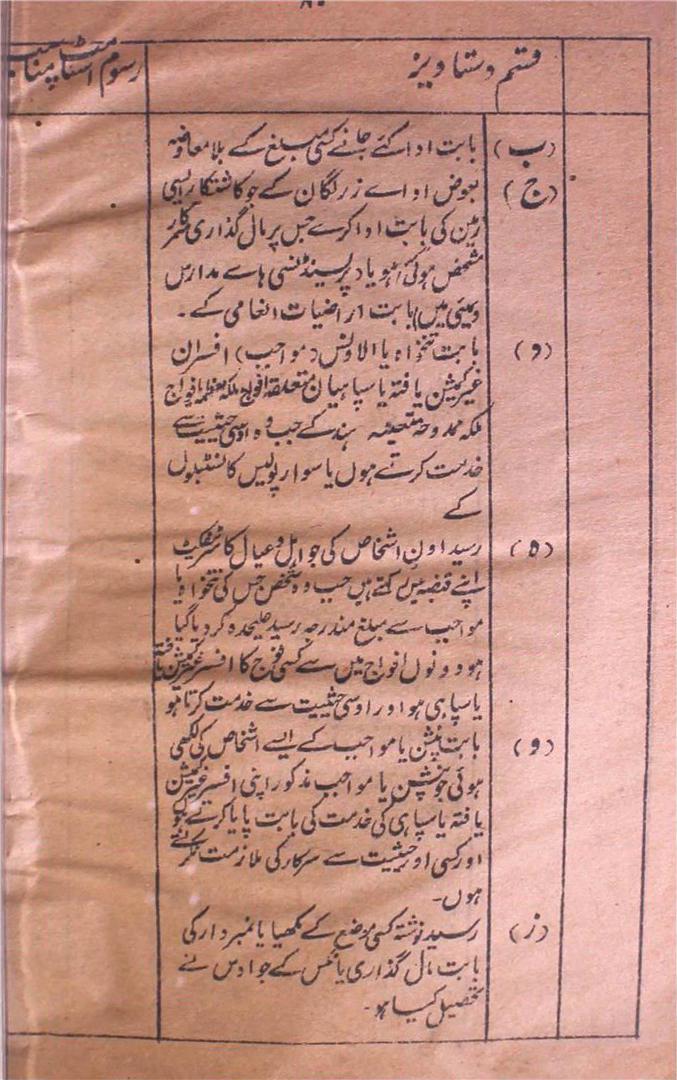 ۸۰
قسم دستاویز
رسوم اسٹامپ مناسب
(ب) بابت ادا کئے جانے کسی مبلغ کے بلا معاوضہ
(ج) بعوض اداے زر لگان کے جو کاشتکار ایسی
زمین کی بابت ادا کرے جس پر مال گذاری سرکار
مشخص ہوئی ہو یا (پریسیڈنسی ہاے مدارس
و بمبئی میں) بابت اراضیات انعامی کے۔
(د) بابت تنخواہ یا الاونس (مواجب) افسران
غیر کمیشن یافتہ یا سپاہیان متعلقہ افواج ملکہ معظمہ یا افواج
ملکہ ممدوحہ متعینہ ہند کے جب وہ اوسی حیثیت سے
خدمت کرتے ہوں یا سوار پولیس کانسٹبلوں
کے
(ہ) رسید اون اشخاص کی جو اہل و عیال کا سرٹیفکٹ
اپنے قبضہ میں رکھتے ہیں جب وہ شخص جس کی تنخواہ یا
مواجب سے مبلغ مندرجہ رسید علیحدہ کر دیا گیا
ہو دونوں افواج میں سے کسی فوج کا افسر غیر کمیشن یافتہ
یا سپاہی ہو اور اوسی حیثیت سے خدمت کرتا ہو
(و) بابت پنشن یا مواجب کے ایسے اشخاص کی لکھی
ہوئی جو پنشن یا مواجب مذکور اپنی افسر غیر کمیشن
یافتہ یا سپاہی کی خدمت کی بابت پایا کرتے ہوں
اور کسی اور حیثیت سے سرکار کی ملازمت نکرتے
ہوں۔
(ز) رسید نوشتہ کسی موضع کے مکھیا یا نمبردار کی
بابت مال گذاری یا ٹکس کے جو اوس نے
تحصیل کیا ہو۔